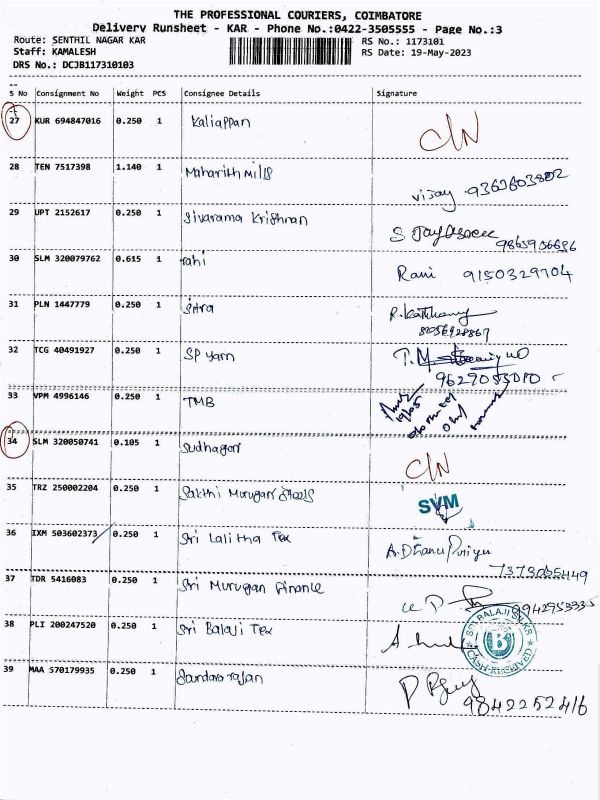 THE PROFESSIONAL COURIERS, COIMBATORE
Delivery Runsheet - KAR - Phone No.:0422-3505555 - Page No.:3
Route: SENTHIL NAGAR KAR RS No.: 1173101
Staff: KAMALESH RS Date: 19-May-2023
DRS No.: DCJB117310103
S No Consignment No Weight PCS Consignee Details Signature
27 KUR 694847016 0.250 1 Kaliappan C/N
28 TEN 7517398 1.140 1 Maharith mills Vijay 9363603802
29 UPT 2152617 0.250 1 Sivarama Krishnan S
9865906686
30 SLM 320079762 0.615 1 rahi Rani 9150329704
31 PLN 1447779 0.250 1 Sitra
8056928867
32 TCG 40491927 0.250 1 SP yarn T.M.
9629055010
33 VPM 4996146 0.250 1 TMB
34 SLM 320050741 0.105 1 Sudhagar C/N
35 TRZ 250002204 0.250 1 Sakthi Murugan Steels SVM
36 IXM 503602373 0.250 1 Sri Lalitha Tex
7373065449
37 TDR 5416083 0.250 1 Sri Murugan Finance
9942953335
38 PLI 200247520 0.250 1 Sri Balaji Tex
SRI BALAJI SILKS
B
CASH RECEIVED
39 MAA 570179935 0.250 1 Sundara rajan
9842252416